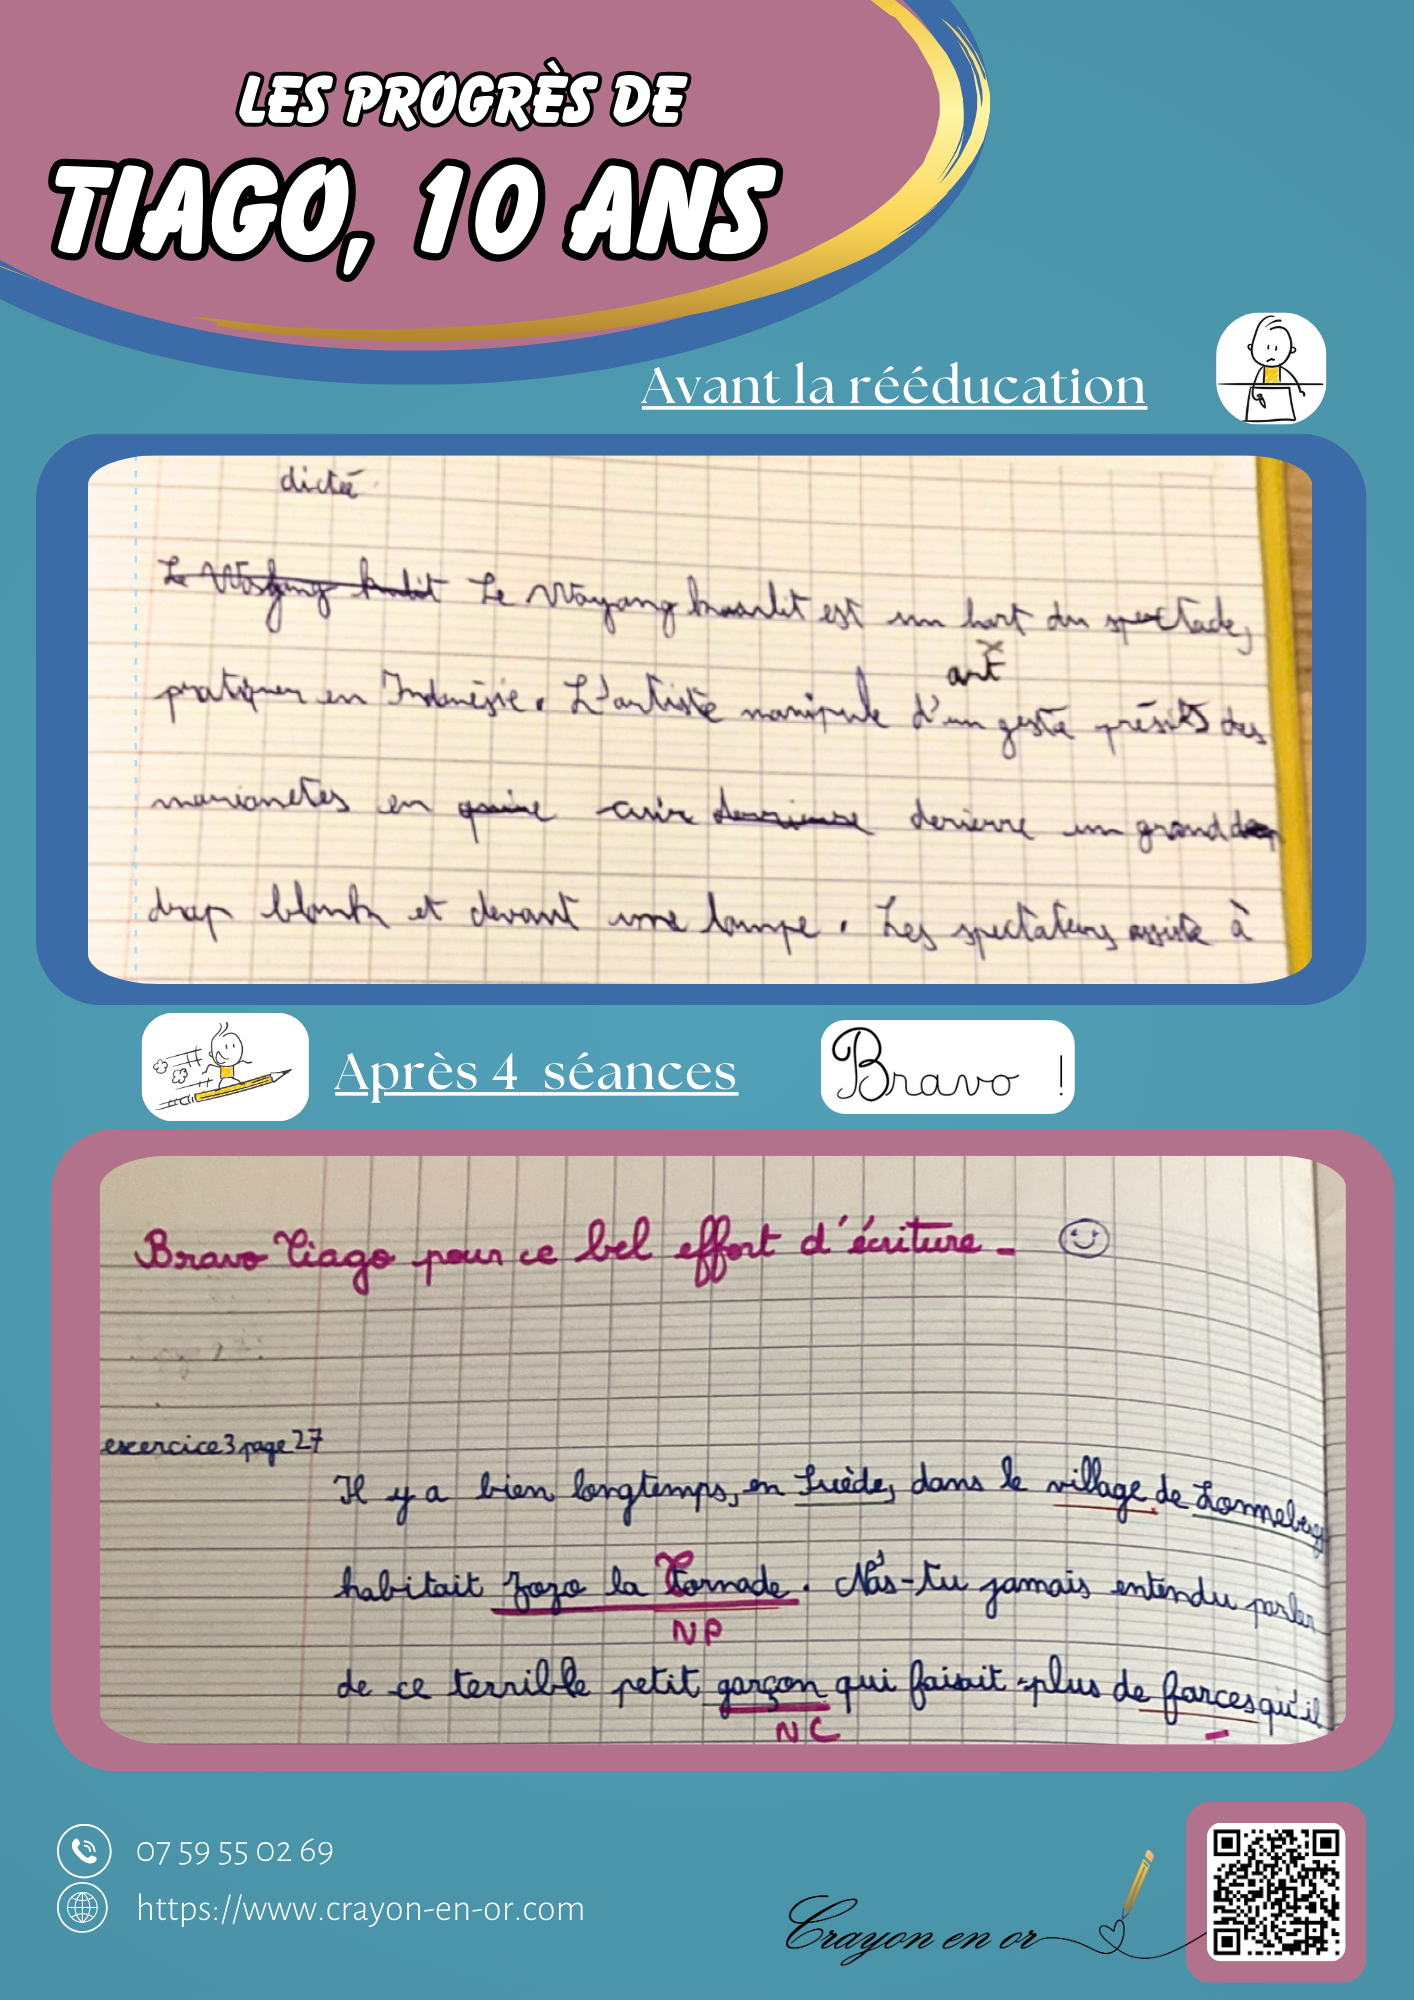 LES PROGRÈS DE
TIAGO, 10 ANS
Avant la rééducation
dictée
Le Wayang kulit Le Wayang koulit est un hart du spectacle,
art
pratiquer en Indonésie. L'artiste manipule d'un geste présits des
marionetes en cuir derierre un grand
drap blank et devant une lampe. Les spectateurs assiste à
Après 4 séances
Bravo !
Bravo Tiago pour ce bel effort d'écriture -
exercice 3 page 27
Il y a bien longtemps, en Suède, dans le village de Lonneberg
habitait Zozo la Tornade. N'as-tu jamais entendu parler
NP
de ce terrible petit garçon qui faisait plus de farces qu'il
NC
07 59 55 02 69
https://www.crayon-en-or.com
Crayon en or